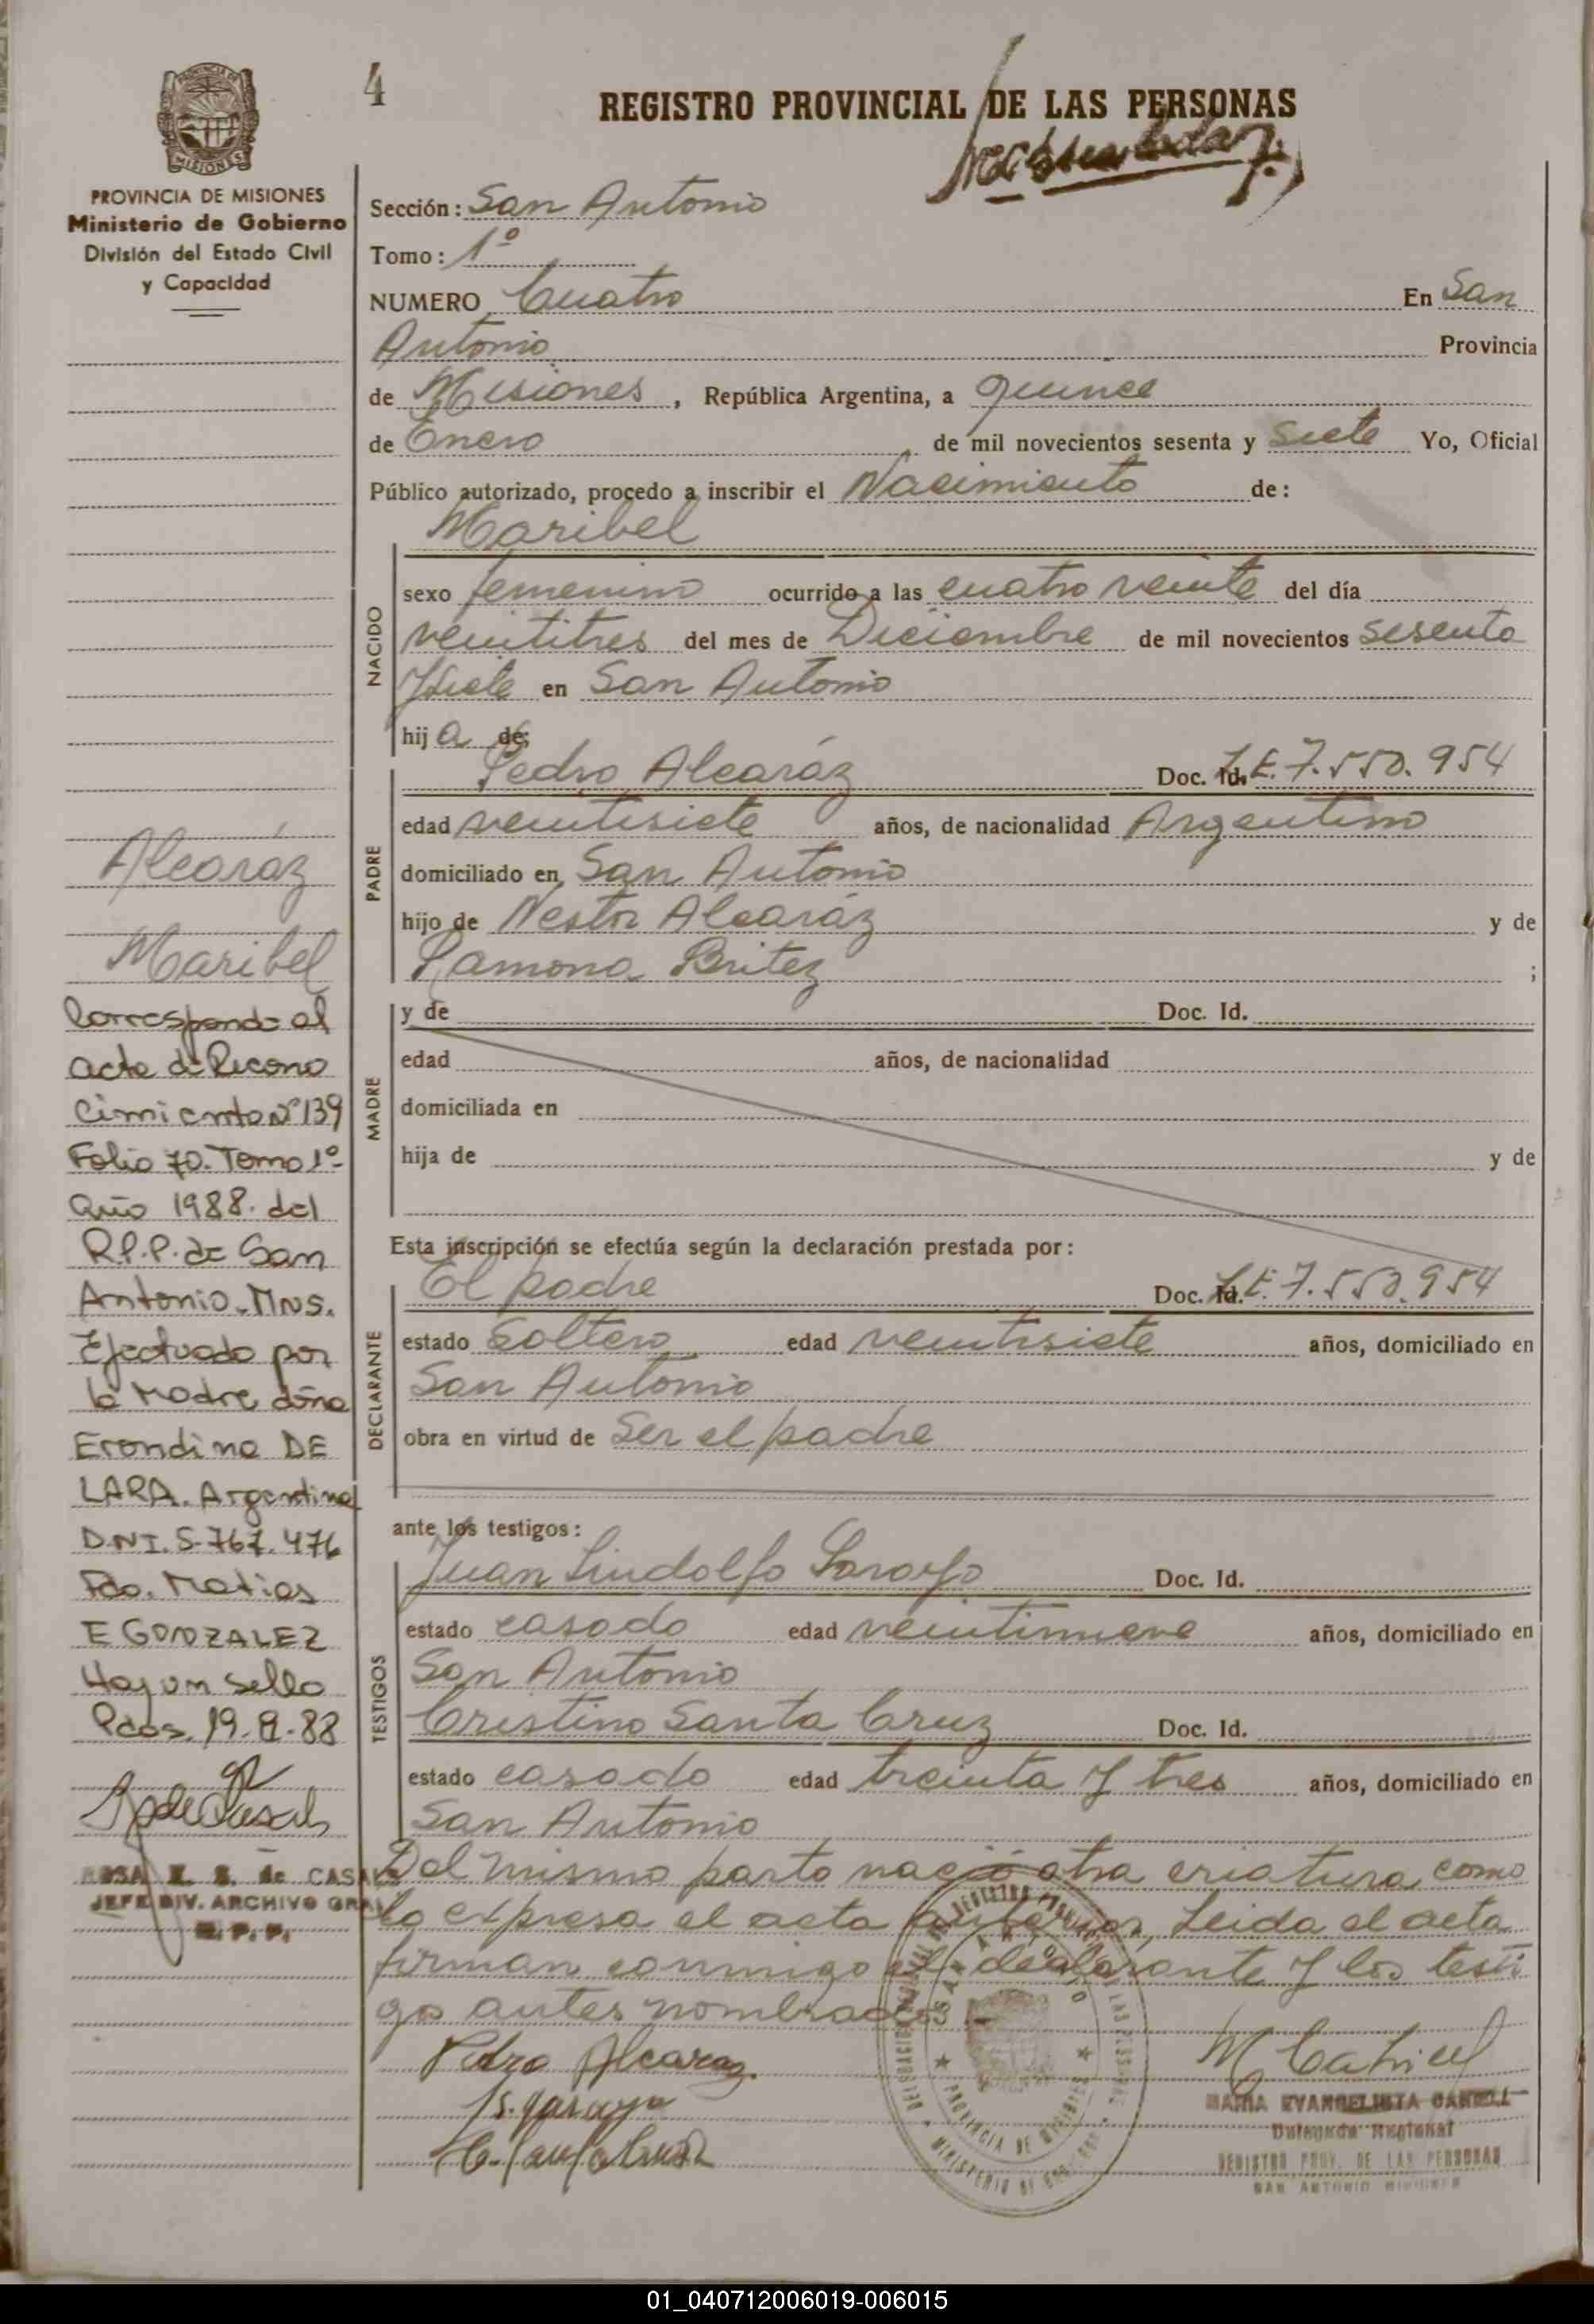 4
REGISTRO PROVINCIAL DE LAS PERSONAS
PROVINCIA DE MISIONES
Ministerio de Gobierno
División del Estado Civil
y Capacidad
Sección: San Antonio
Tomo: 1º
NUMERO Cuatro En San
Antonio Provincia
de Misiones, República Argentina, a quince
de Enero de mil novecientos sesenta y siete Yo, Oficial
Público autorizado, procedo a inscribir el Nacimiento de:
Maribel
NACIDO
sexo femenino ocurrido a las cuatro veinte del día
veintitres del mes de Diciembre de mil novecientos sesenta
y siete en San Antonio
hija de:
Pedro Alcaráz Doc. Id. L.E. 7.550.954
PADRE
edad veintisiete años, de nacionalidad Argentino
domiciliado en San Antonio
hijo de Nestor Alcaráz y de
Ramona Britez ;
MADRE
y de Doc. Id.
edad años, de nacionalidad
domiciliada en
hija de y de
Esta inscripción se efectúa según la declaración prestada por:
El padre Doc. Id. L.E. 7.550.954
DECLARANTE
estado Soltero edad veintisiete años, domiciliado en
San Antonio
obra en virtud de Ser el padre
ante los testigos:
Juan Lindolfo Doc. Id.
TESTIGOS
estado casado edad veintinueve años, domiciliado en
San Antonio
Cristino Santa Cruz Doc. Id.
estado casado edad treinta y tres años, domiciliado en
San Antonio
Del mismo parto nació otra criatura como
lo expresa el acta anterior, Leida el acta
firman conmigo el declarante y los testi
go antes nombrados.-
Pedro Alcaraz.
M Cabriel
MARIA EVANGELISTA
Delegada Regional
REGISTRO PROV. DE LAS PERSONAS
SAN ANTONIO MISIONES
PROVINCIA DE MISIONES
Alcaráz
Maribel
Corresponde al
acta de Recono
cimiento Nº 139
Folio 70. Tomo 1º
Año 1988. del
R.P.P. de San
Antonio. Mns.
Efectuado por
la Madre doña
Erondina DE
LARA. Argentina
D.N.I. 5.767.476
Fdo. Matias
E GONZALEZ
Hay un sello
Pdas. 19.9.88
ROSA E. S. de CASALS
JEFE DIV. ARCHIVO GRAL
R. P. P.
01_040712006019-006015